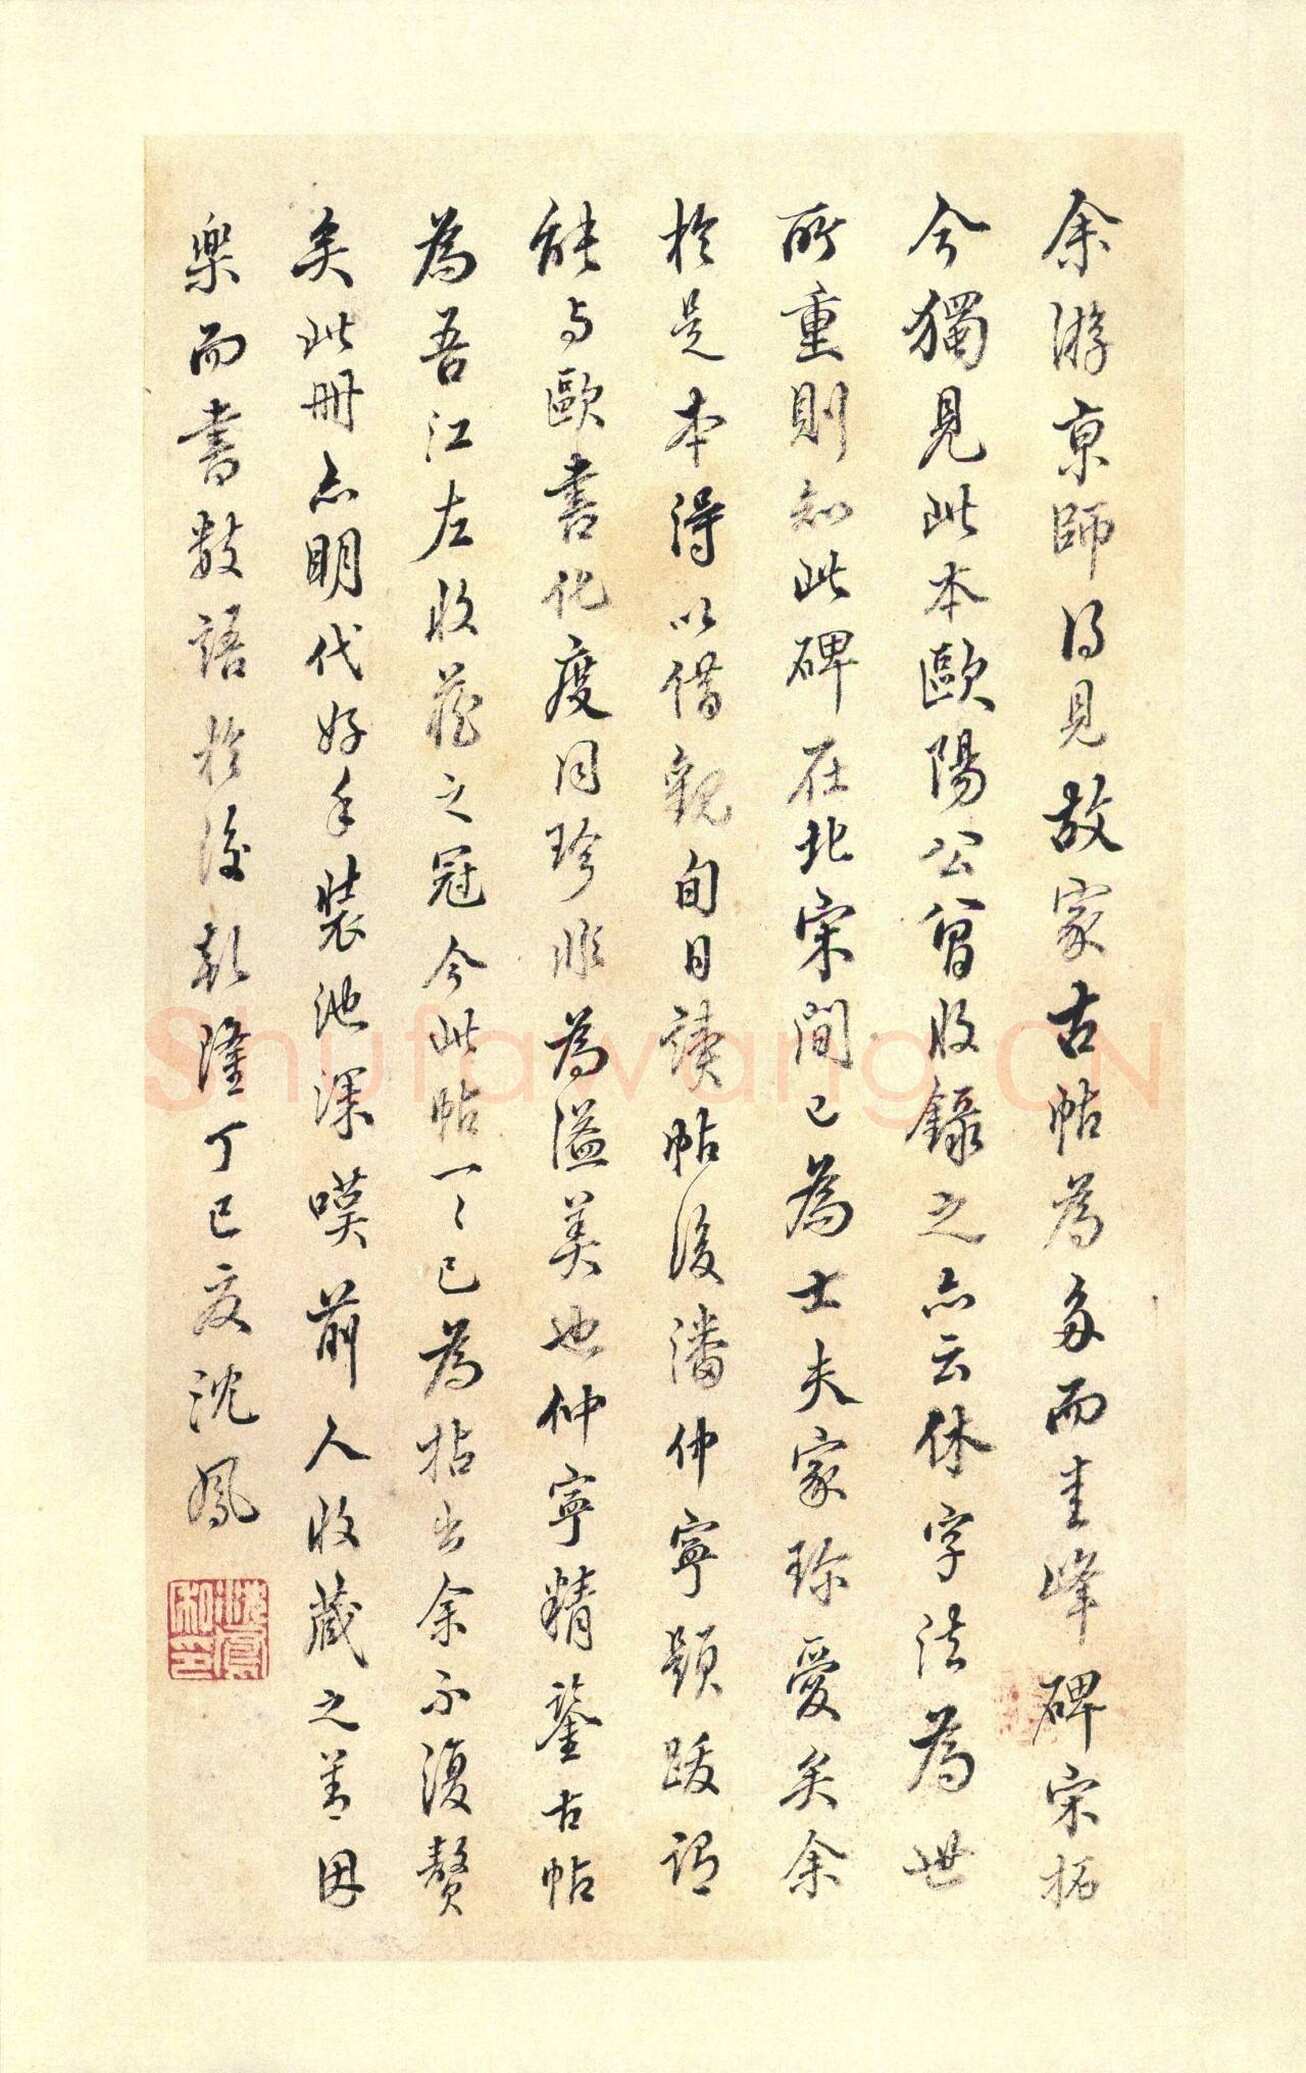 余游京師得見故家古帖為多而圭峰碑宋拓
今獨見此本歐陽公曾收錄之亦云休字法為世
所重則知此碑在北宋間已為士夫家珍愛矣余
於是本得以借觀旬日讀帖後潘仲寧題跋謂
能與歐書化度同珍非為溢美也仲寧精鑒古帖
為吾江左收藏之冠今此帖一〻已為拈出余不復贅
矣此冊亦明代好手裝池深嘆前人收藏之善因
樂而書數語於後乾隆丁巳夏沈鳳
沈鳳私印
Shufawang.CN